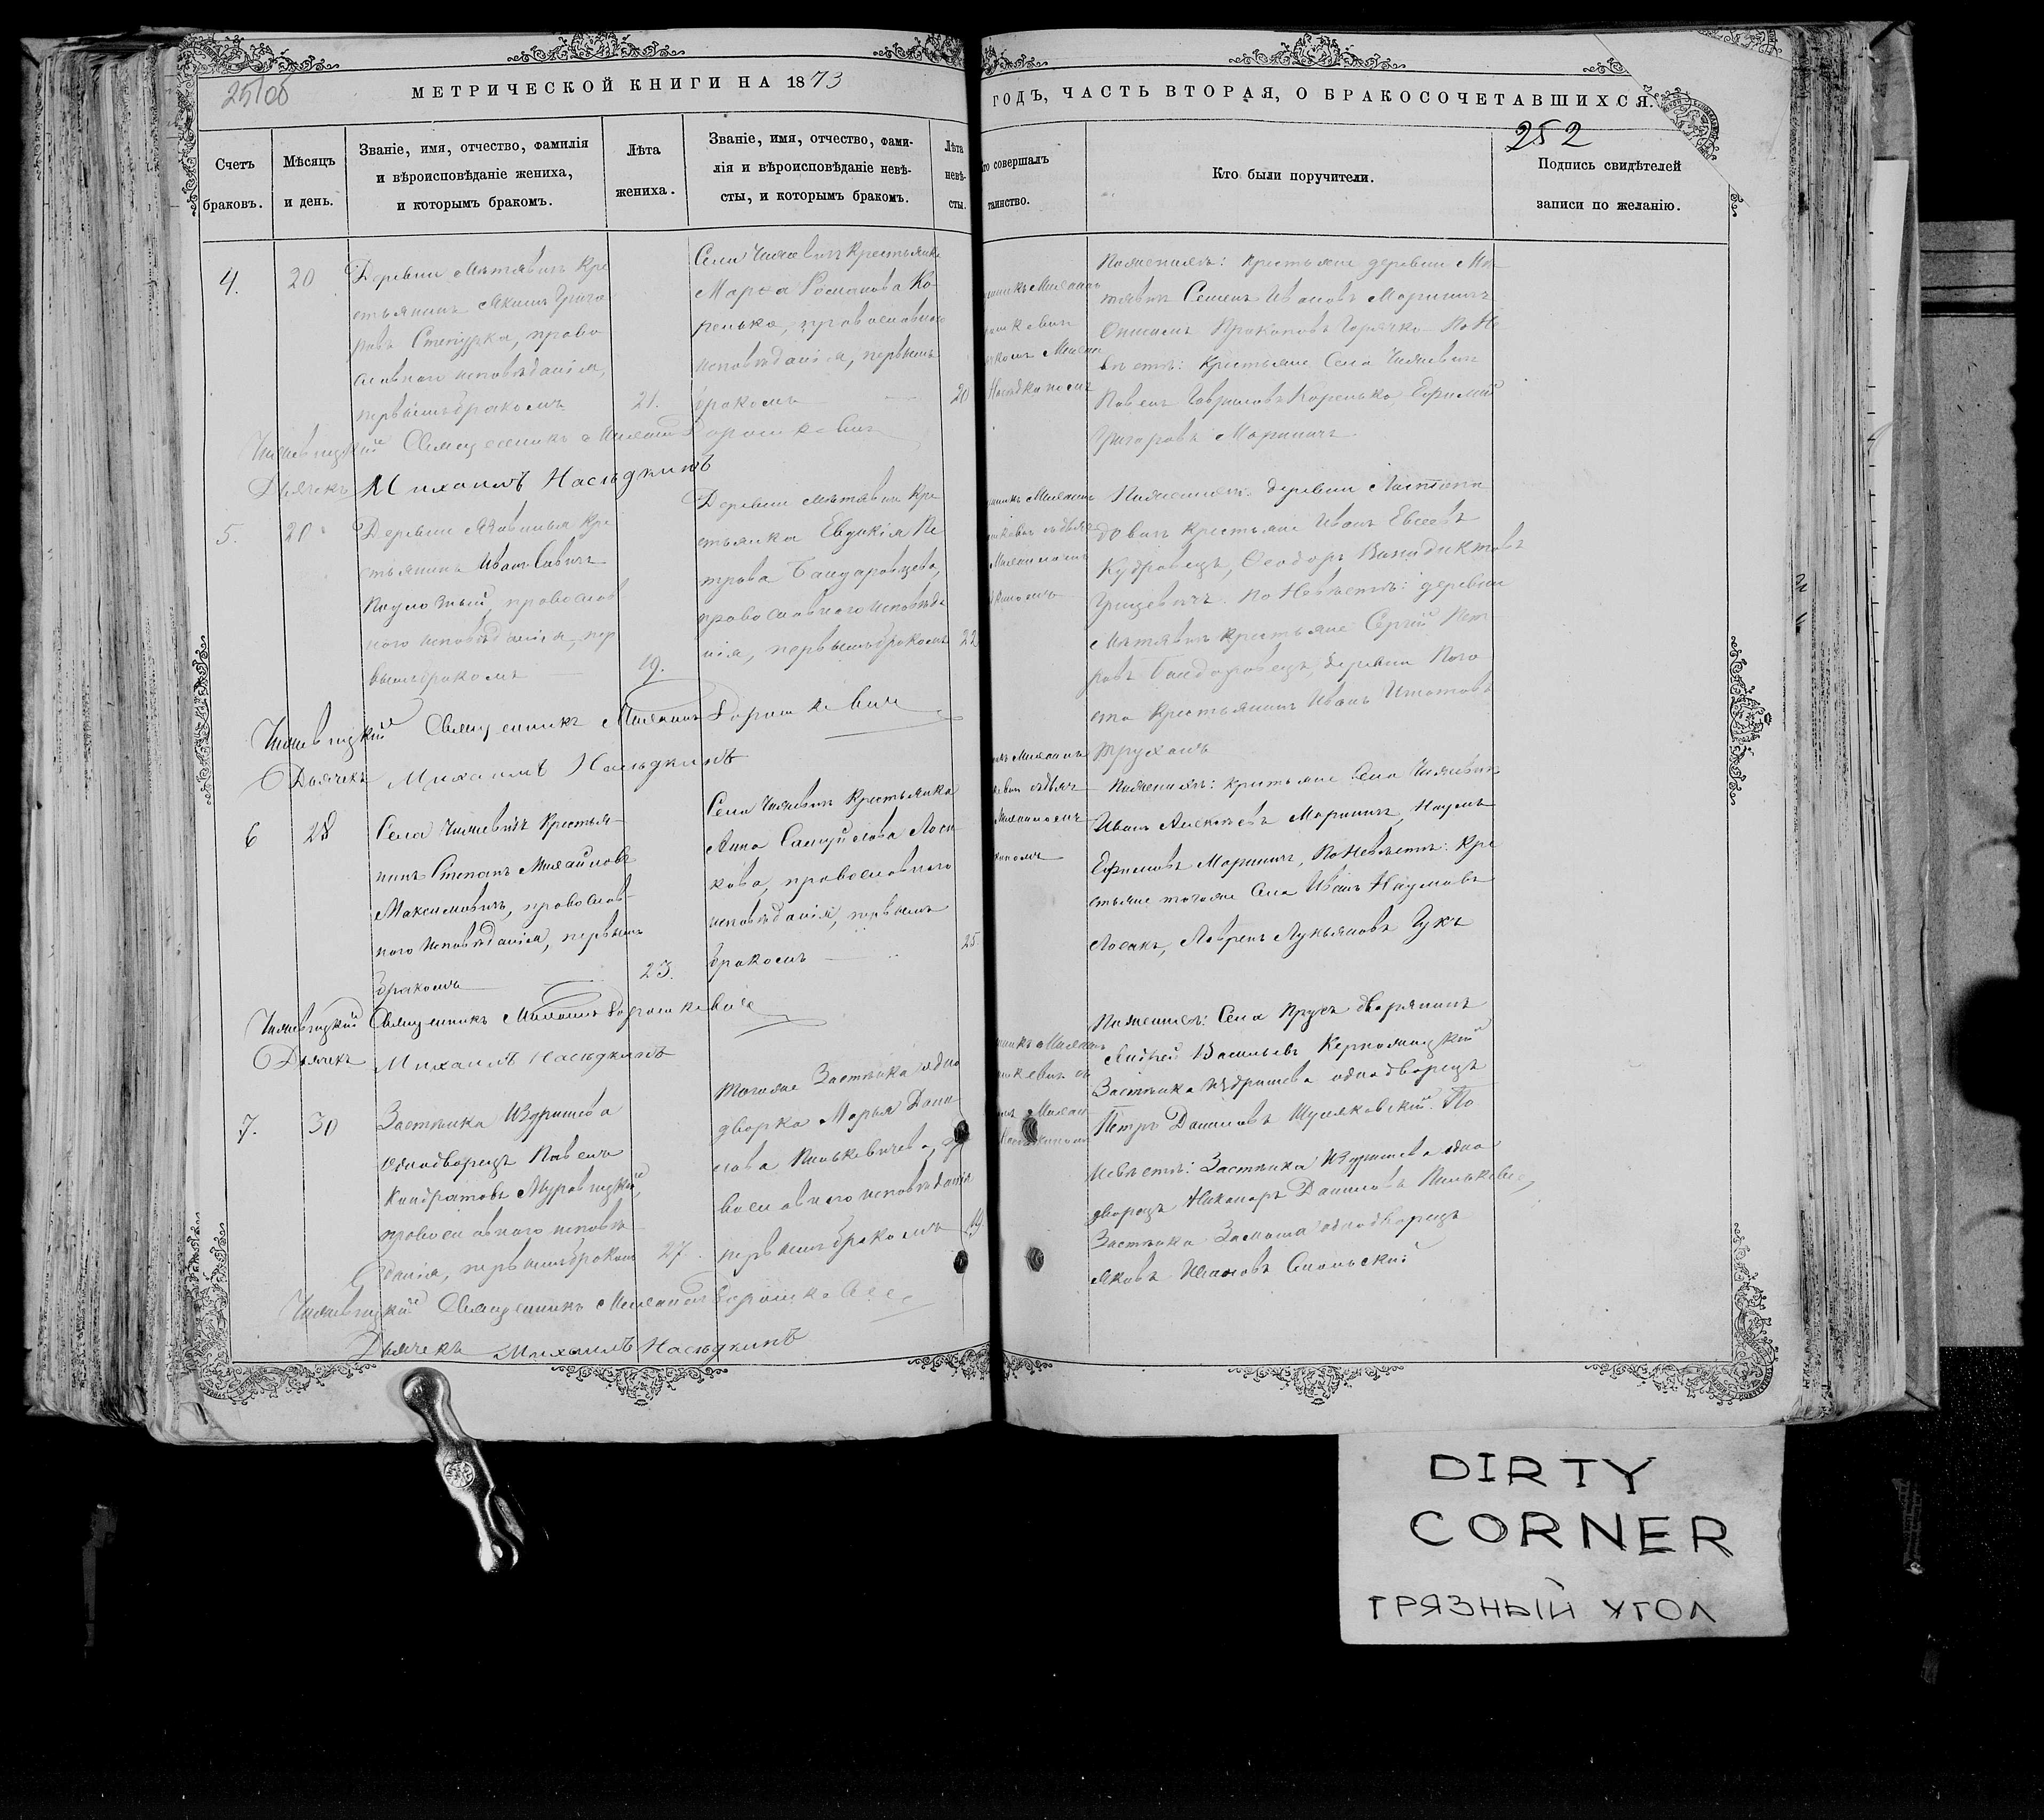 МЕТРИЧЕСКОЙ КНИГИ НА 1873
ГОДЪ, ЧАСТЬ ВТОРАЯ, О БРАКОСОЧЕТАВШИХСЯ.
252
Счетъ браковъ.
Мѣсяцъ и день.
Званіе, имя, отчество, фамилія
и вѣроисповѣданіе жениха,
и которымъ бракомъ.
Лѣта жениха.
Званіе, имя, отчество, фами-
лія и вѣроисповѣданіе невѣ-
сты, и которымъ бракомъ.
Лѣта невѣ-
сты.
совершалъ
таинство.
Кто были поручители.
Подпись свидѣтелей
записи по желанію.
4.
20
Деревни Мѣтявичъ Кре
стьянинъ Якимъ Григо
ровъ Степурка, право
славнаго исповѣданія,
первымъ бракомъ
21.
Села Чижевичъ Крестьянка
Марѳа Романова Ко
ренько, православнаго
исповѣданія, первымъ
бракомъ
20
По женихѣ: Крестьяне деревни Мѣ
тявичъ Семенъ Ивановъ Мариничъ
Прокоповъ Горячко По Не
вѣстѣ: Крестьяне Села Чижевичъ
Павелъ Гавриловъ Коренько, Ефимій
Григоровъ Мариничъ
Чижевицкій Священникъ Михаилъ Горошкевичъ
Дьячекъ Михаилъ Насѣдкинъ
5.
20
Деревни Кре
стьянинъ Иванъ Савичъ
православ
наго исповѣданія, пер
вымъ бракомъ
19.
Деревни Мѣтявичъ Кре
стьянка Евдокія Пе
трова Бандаровцева,
православнаго исповѣда
нія, первымъ бракомъ
22
По женихѣ: деревни
Крестьяне Иванъ Евсеевъ
Кудравецъ, Ѳеодоръ Венидиктовъ
Грицевичъ. По Невѣстѣ: деревни
Мѣтявичъ Крестьяне Сергій Пет
ровъ Бандаровецъ, деревни Пого
ста Крестьянинъ Иванъ Игнатовъ
Труханъ
Чижевицкій Священникъ Михаилъ Горошкевичъ
Дьячекъ Михаилъ Насѣдкинъ
6
28
Села Чижевичъ Крестья-
нинъ Степанъ Михайловъ
Максимовичъ, православ-
наго исповѣданія, первымъ
бракомъ
23.
Села Чижевичъ Крестьянка
Анна Самуйлова Лоса
кова, православнаго
исповѣданія, первымъ
бракомъ
25
По женихѣ: Крестьяне Села Чижевичъ
Иванъ Алексѣевъ Мариничъ, Наумъ
Ефимовъ Мариничъ, По Невѣстѣ: Кре
стьяне тогоже Села Иванъ Наумовъ
Лосакъ, Лавренъ Лукьяновъ Гукъ
Чижевицкій Священникъ Михаилъ Горошкевичъ
Дьячекъ Михаилъ Насѣдкинъ
7.
30
Застѣнка Издрашева
Однодворецъ Павелъ
Кондратовъ Муравицкій,
православнаго исповѣ
данія, первымъ бракомъ
27.
Тогоже Застѣнка одно
дворка Марья Дани
лова Пинькевичева, пра
вославнаго исповѣданія
первымъ бракомъ
19.
По женихѣ: Села Прусъ дворянинъ
Андрей Васильевъ Керножицкій
Застѣнка Издрашева однодворецъ
Петръ Даниловъ Шуляковскій. По
Невѣстѣ: Застѣнка Издрашева одно
дворецъ Никаноръ Даниловъ Пинькевичъ,
Застѣнка однодворецъ
Яковъ Ивановъ
Чижевицкій Священникъ Михаилъ Горошкевичъ
Дьячекъ Михаилъ Насѣдкинъ
DIRTY
CORNER
ГРЯЗНЫЙ УГОЛ